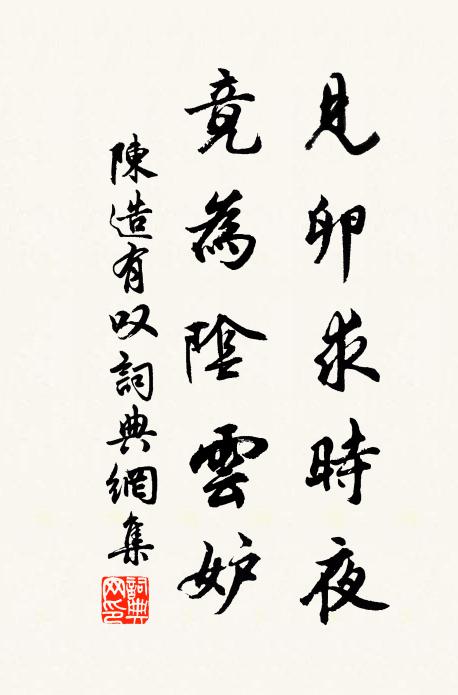 見卵求時夜
竟為陰雲妒
陳造有叹詞典網集
詞典网印